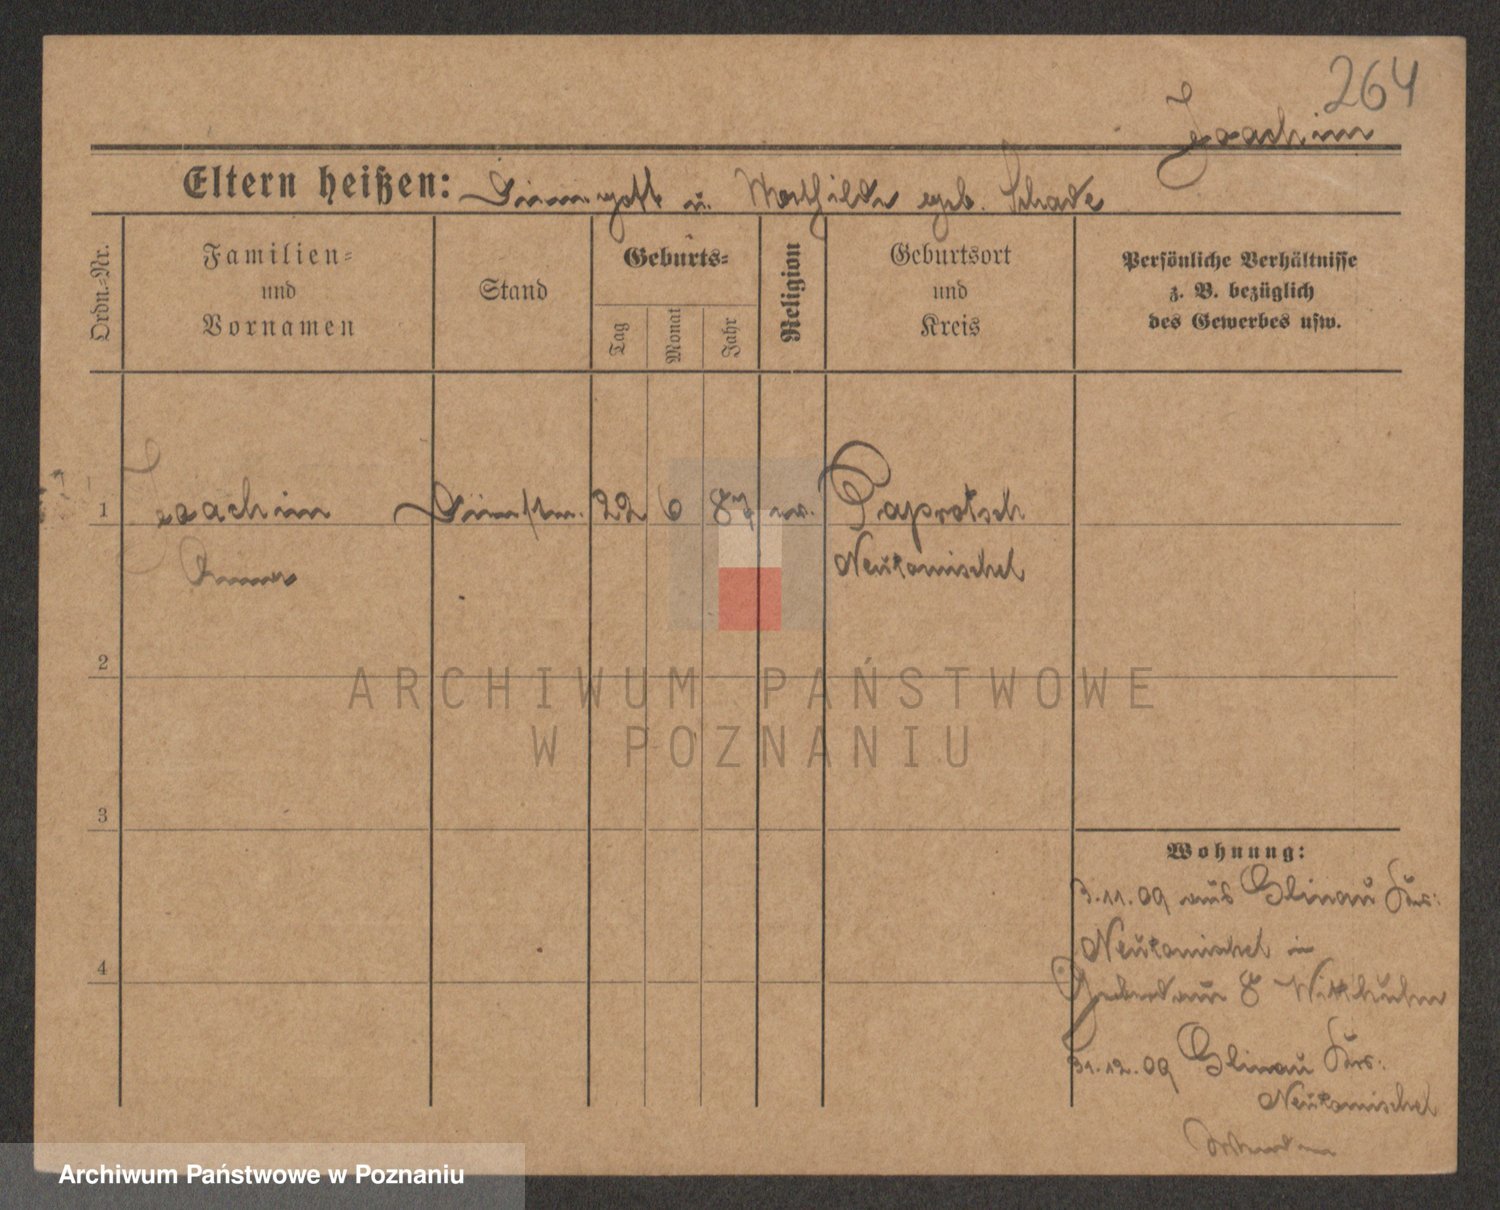 264
Joachim
Eltern heißen: Dienegott u. Mathilde geb. Schade
Ordn.-Nr.
Familien-
und
Vornamen
Stand
Geburts-
Tag
Monat
Jahr
Religion
Geburtsort
und
Kreis
Persönliche Verhältnisse
z. B. bezüglich
des Gewerbes usw.
1 Joachim Dienstm. 22 6 87 ev. Paprotsch
Anna Neutomischel
2
ARCHIWUM PAŃSTWOWE
W POZNANIU
3
Wohnung:
3.11.09 aus Glinau Krs:
Neutomischel in
8
4
31.12.09 Glinau Krs:
Neutomischel
Archiwum Państwowe w Poznaniu